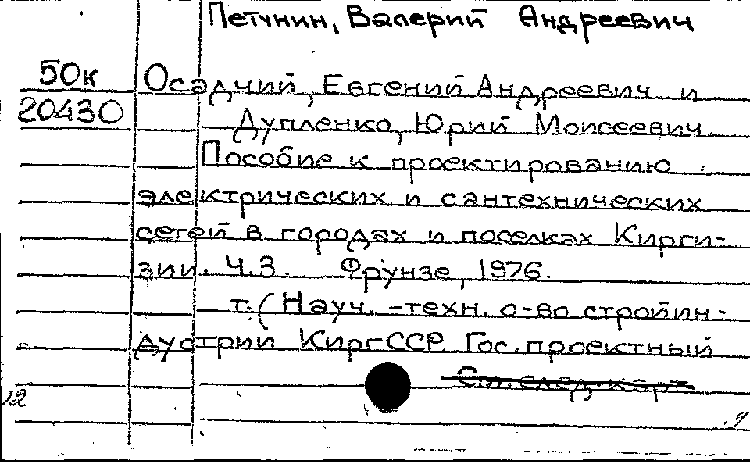 Петунин, Валерий Андреевич
50к
20430
Осадчий, Евгений Андреевич и
Дупленко, Юрий Моисеевич
Пособие к проектированию
электрических и сантехнических
сетей в городах и поселках Кирги-
зии. Ч.3. Фрунзе, 1976.
т. (Науч.-техн. о-во стройин-
дустрии КиргССР. Гос. проектный
См. след. карт
12